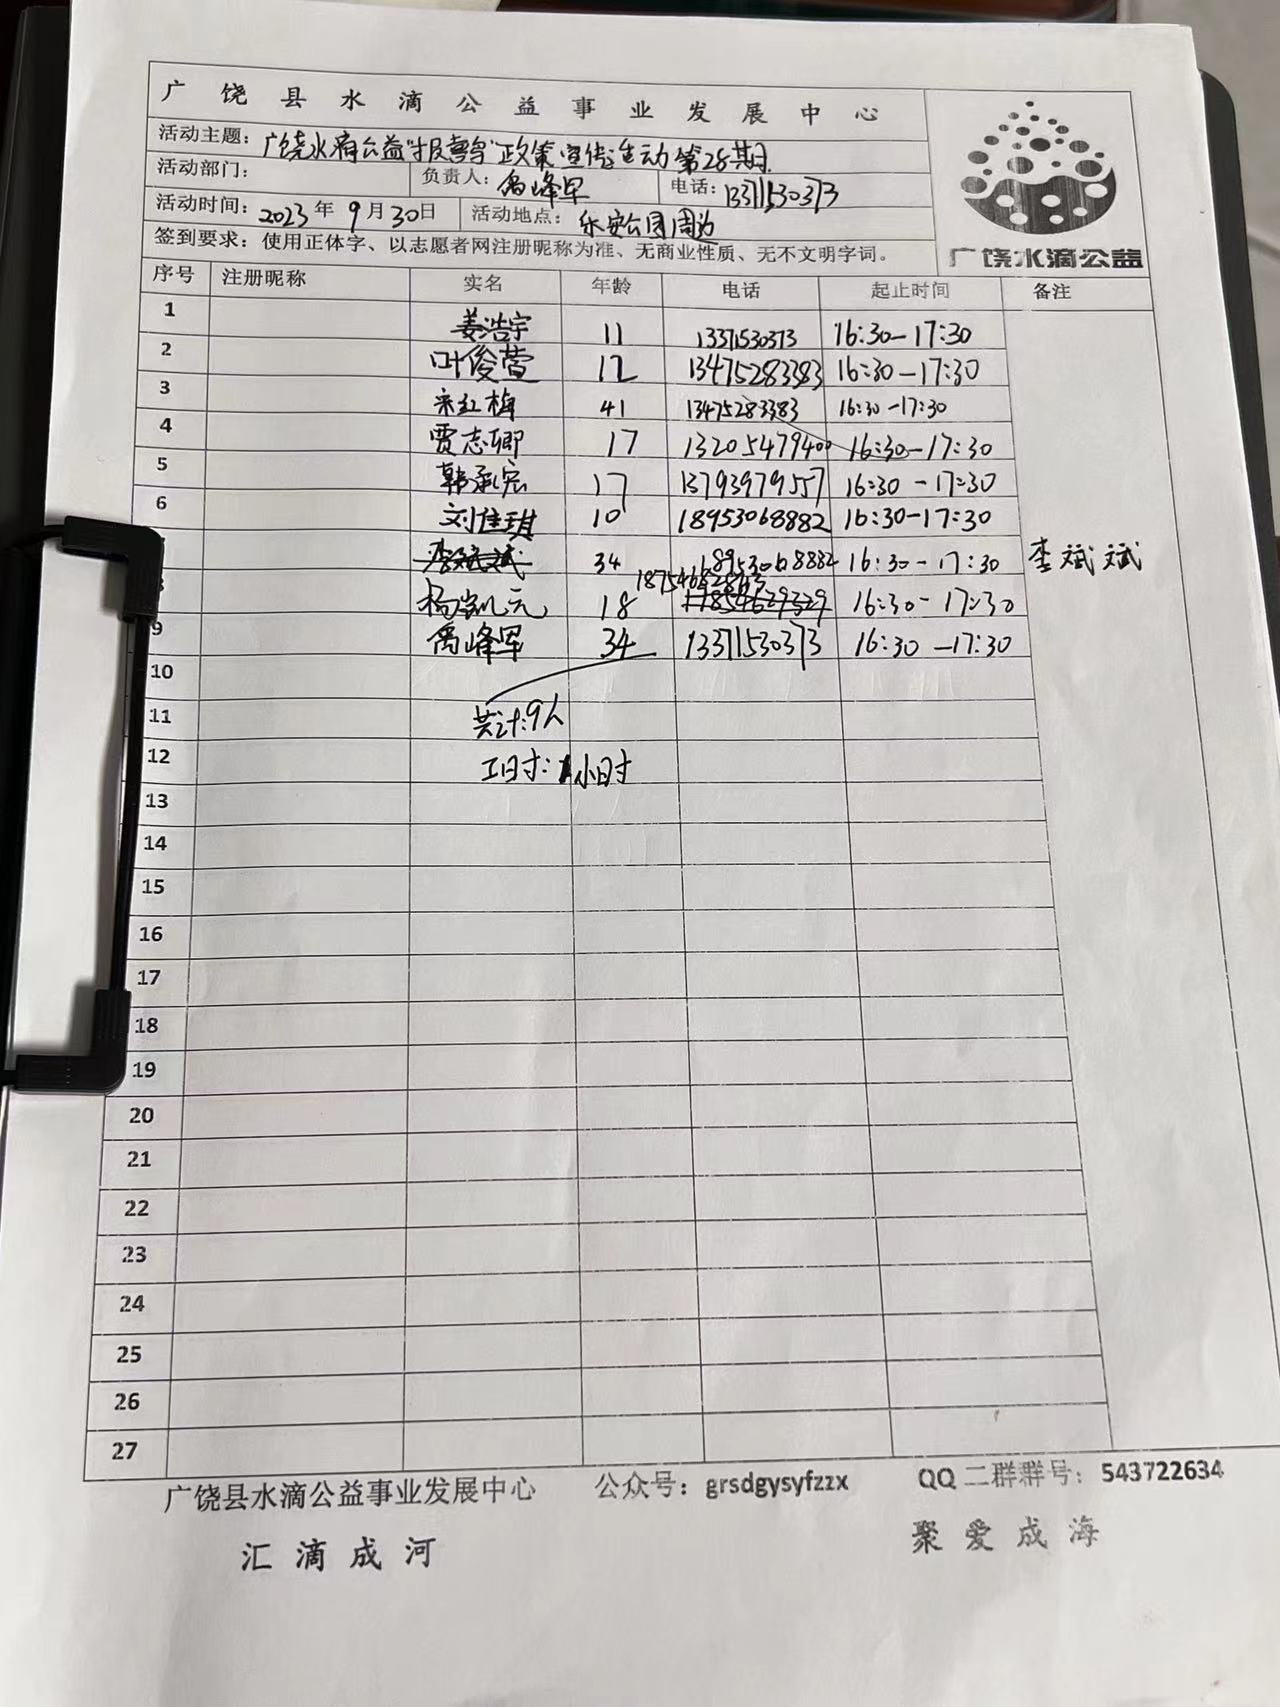 广饶县水滴公益事业发展中心
活动主题：广饶水滴公益"报喜鸟"政策宣传活动第28期
活动部门： 负责人：禹峰军 电话：13371530373
活动时间：2023年9月30日 活动地点：乐安公园周边
签到要求：使用正体字、以志愿者网注册昵称为准、无商业性质、无不文明字词。
广饶水滴公益
序号 注册昵称 实名 年龄 电话 起止时间 备注
1 姜浩宇 11 13371530373 16:30-17:30
2 叶俊萱 12 13475283383 16:30-17:30
3 宋红梅 41 13475283383 16:30-17:30
4 贾志卿 17 13205479400 16:30-17:30
5 韩承宏 17 13793979557 16:30-17:30
6 刘佳琪 10 18953068882 16:30-17:30
李斌斌 34 18953068882 16:30-17:30 李斌斌
8 杨凯元 18 18754682843 16:30-17:30
9 禹峰军 34 13371530373 16:30-17:30
10
11 共计:9人
12 工时:1小时
13
14
15
16
17
18
19
20
21
22
23
24
25
26
27
广饶县水滴公益事业发展中心 公众号：grsdgysyfzzx QQ二群群号：543722634
汇滴成河 聚爱成海